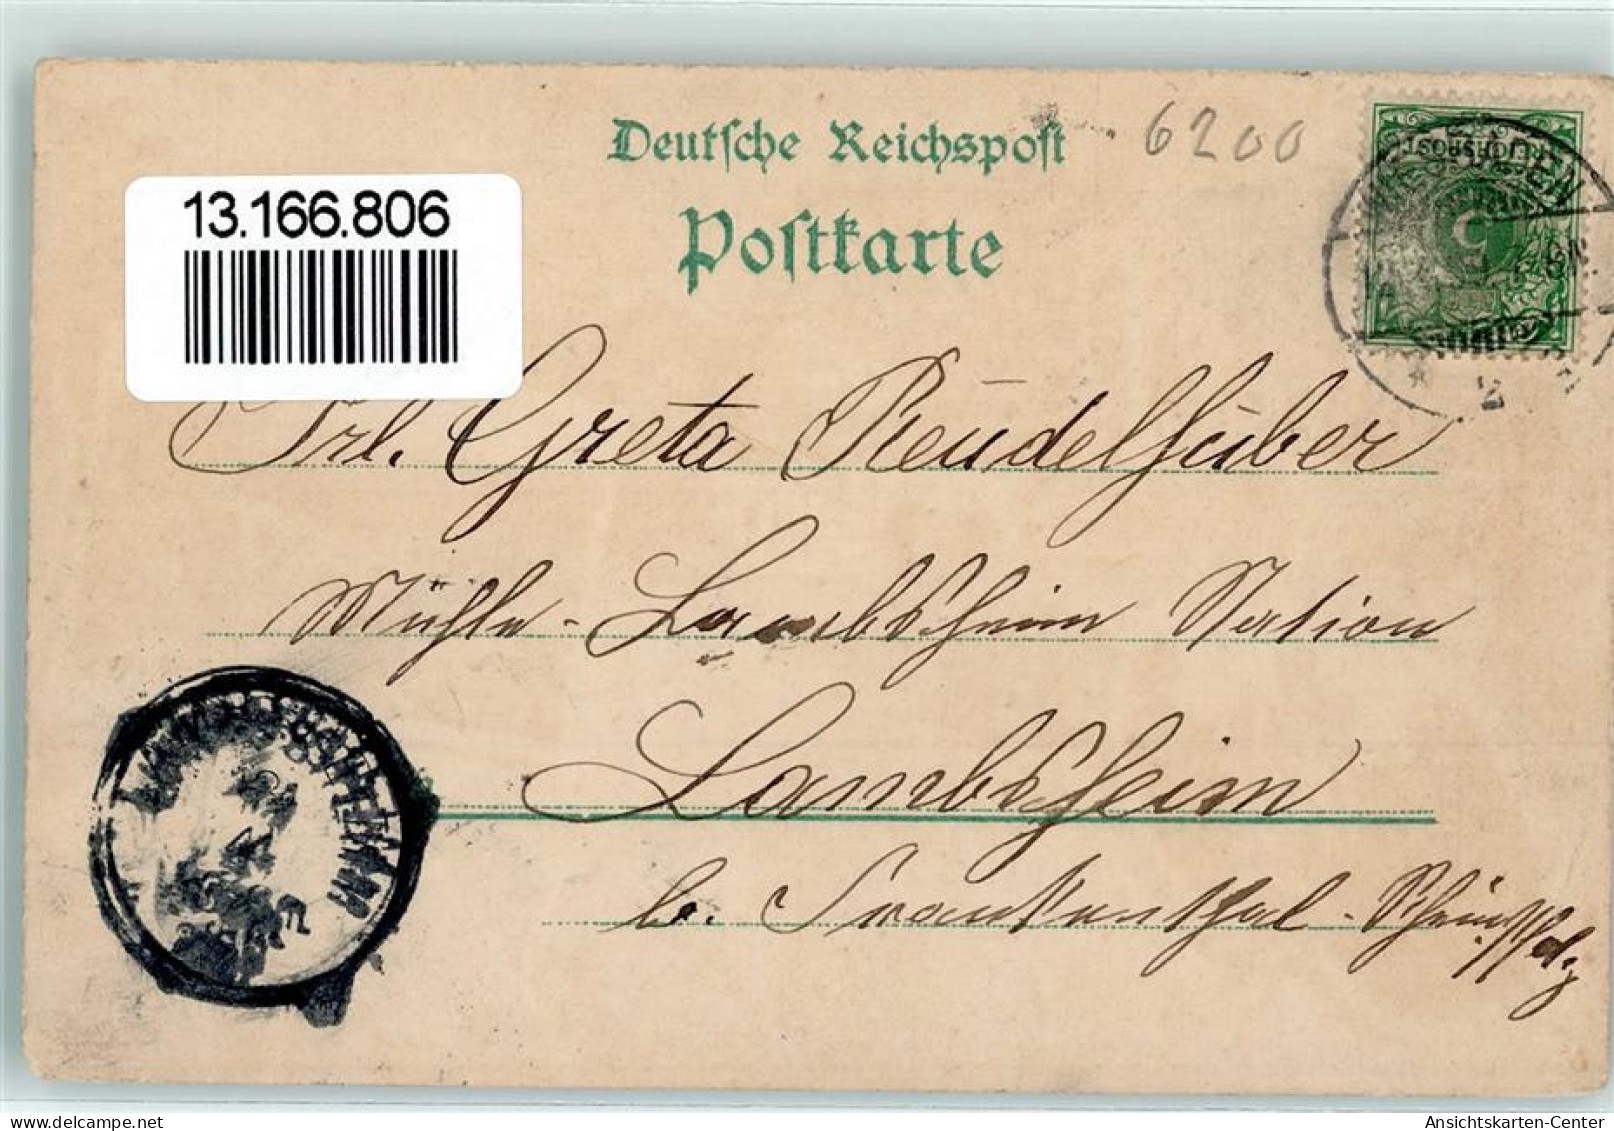 Deutsche Reichspost
6200
Postkarte
13.166.806
REICHSPOST
5
WIESBADEN
2
Frl. Greta Reudelhuber
Mühle - Lambsheim Station
Lambsheim
b. Frankenthal - Rheinpfalz
LAMBSHEIM
Ansichtskarten-Center
www.delcampe.net